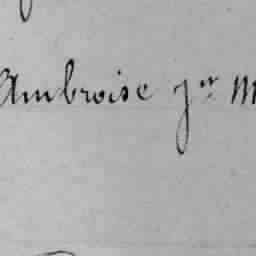 Ambroise jr M